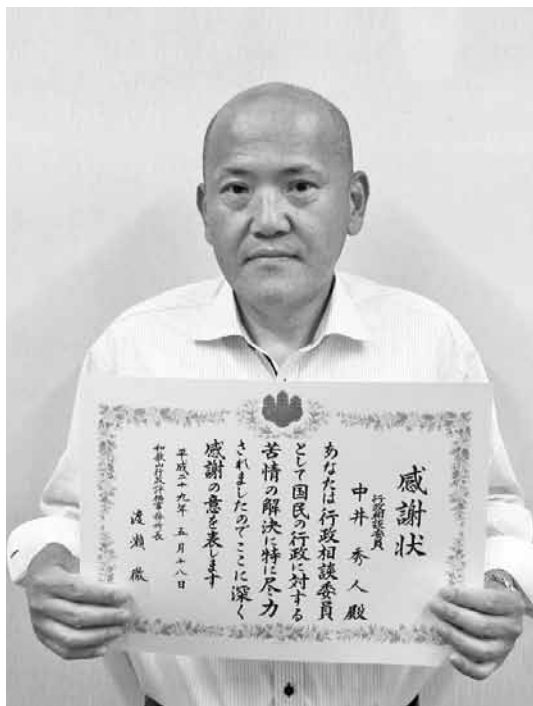 感謝状
行政相談委員
中井 秀人 殿
あなたは行政相談委員
として国民の行政に対する
苦情の解決に特に尽力
されましたのでここに深く
感謝の意を表します
平成二十九年 五月十八日
和歌山行政評価事務所長
渡瀬 徹